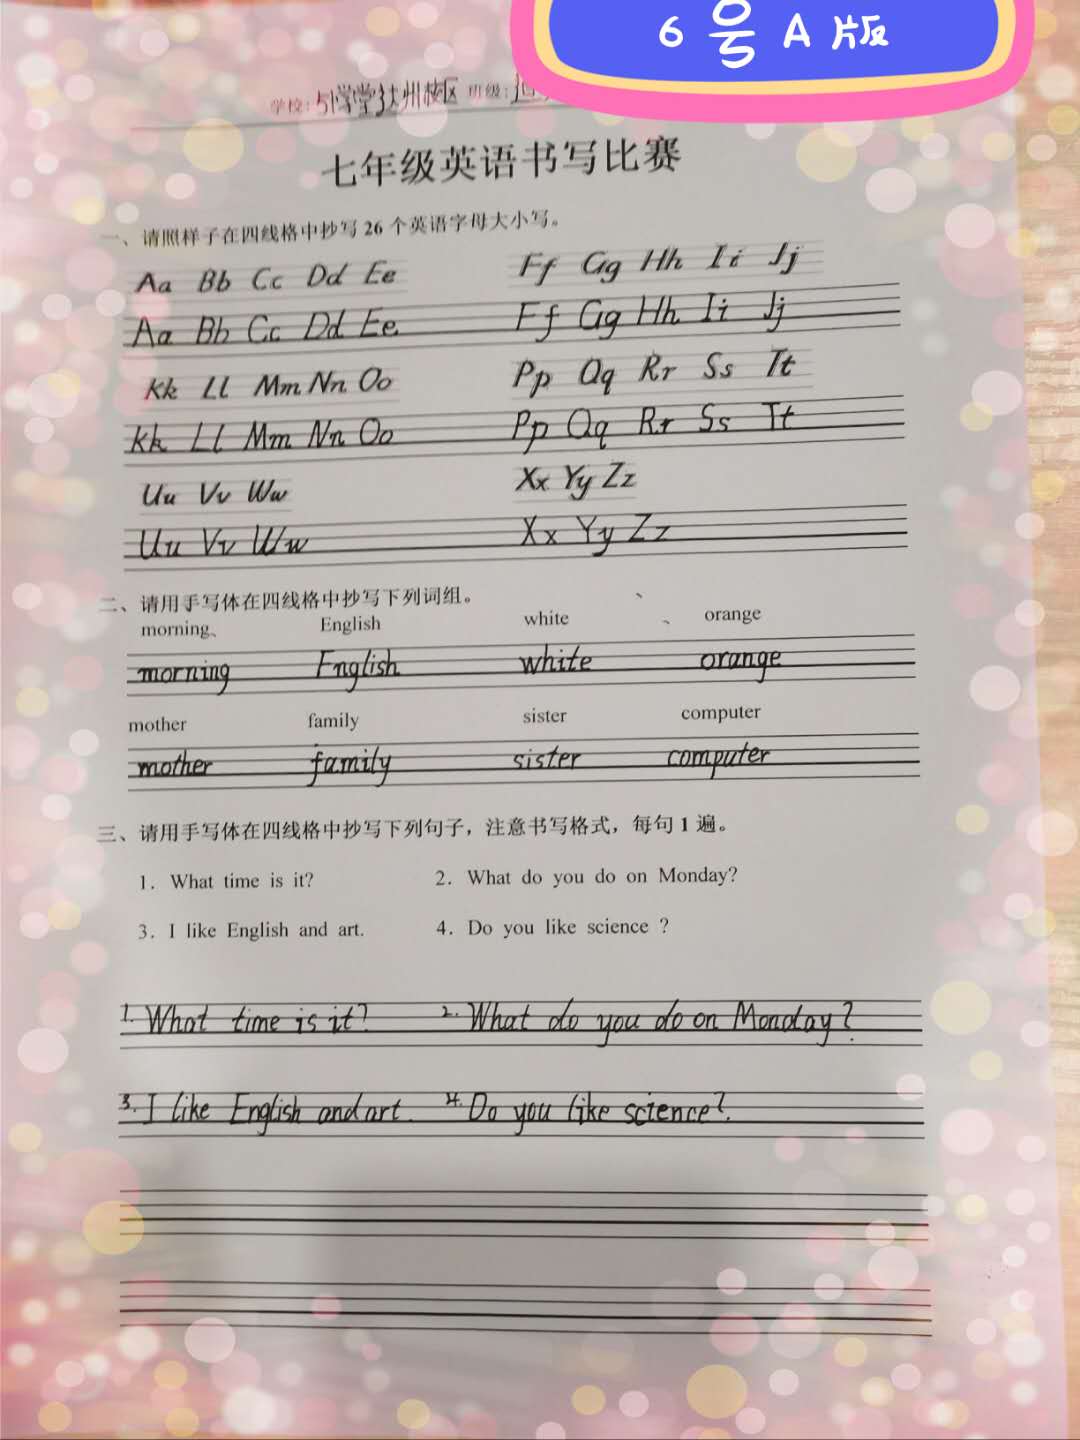 6号A版
学校: 达州校区 班级:
七年级英语书写比赛
一、请照样子在四线格中抄写26个英语字母大小写。
Aa Bb Cc Dd Ee Ff Gg Hh Ii Jj
Aa Bb Cc Dd Ee Ff Gg Hh Ii Jj
Kk Ll Mm Nn Oo Pp Qq Rr Ss Tt
Kk Ll Mm Nn Oo Pp Qq Rr Ss Tt
Uu Vv Ww Xx Yy Zz
Uu Vv Ww Xx Yy Zz
二、请用手写体在四线格中抄写下列词组。
morning、 English white 、 orange
morning English white orange
mother family sister computer
mother family sister computer
三、请用手写体在四线格中抄写下列句子，注意书写格式，每句1遍。
1. What time is it? 2. What do you do on Monday?
3. I like English and art. 4. Do you like science ?
1. What time is it? 2. What do you do on Monday?
3. I like English and art. 4. Do you like science?